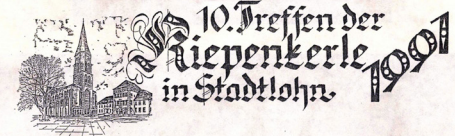 10. Treffen der
Kiepenkerle
in Stadtlohn.
1991